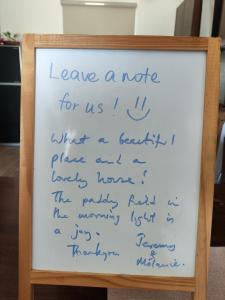 Leave a note
for us! !!
What a beautiful
place and a
lovely house!
The paddy field in
the morning light is
a joy.
Thankyou
Jeremy
&
Mélanie.